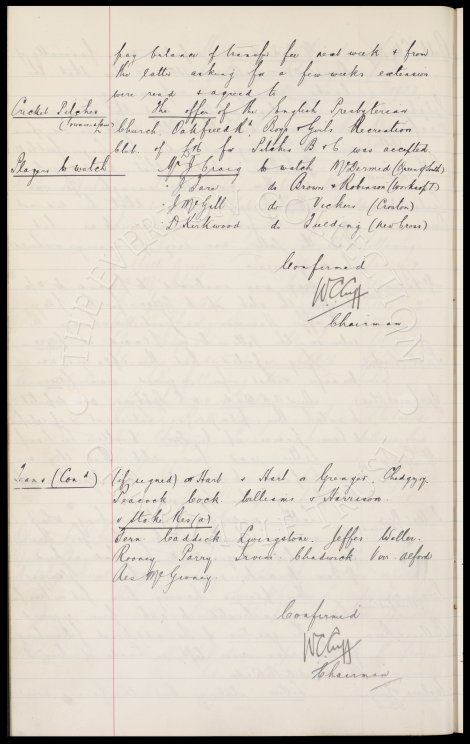 pay balance of transfer fee next week & from
the latter asking for a few weeks extension
were read & agreed to
Cricket Pitches The offer of the English Presbyterian
Church Oakfield Rd. Boys & Girls Recreation
Club. of for Pitches B & C was accepted.
Players to watch Mr J. Craig to watch McDermid (Queen of South)
" J. Tare do Brown & Robinson (Worksop T)
" J. McGill do Vickers (Croston)
" D. Kirkwood do Fielding (New Cross)
Confirmed
W.C. Cuff
Chairman
Teams (Con'd) (if signed) or Hart & Hart or Grenyer. Chedgzoy.
Peacock Cock Williams & Harrison
v Stoke Res (a)
Fern Caddick Livingstone. Jeffes Weller.
Rooney Parry Irvine Chadwick Alford
Res McGivney
Confirmed
W.C. Cuff
Chairman
THE EVERTON COLLECTION